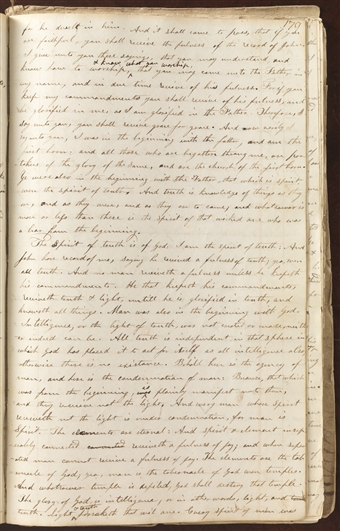 179
for he dwelt in him. And it shall come to pass, that if you
are faithful, you shall receive the fulness of the record of John
I give unto you these sayings, that you may understand and
& know what you worship,
know how to worship, that you may come unto the Father, in
my name, and in due time receive of his fulness. For if you
keep my commandments you shall receive of his fulness, and
be glorified in me, as I am glorified in the Father. Therefore, I
say unto you, you shall receive grace for grace. And now verily I
say unto you, I was in the beginning with the father, and am the
first born; and all those who are begotten through me, are par
takers of the glory of the same, and are the church of the first born.
Ye were also in the beginning with the Father, that which is spirit
even the spirit of truth. And truth is knowledge of things as they
are, and as they were, and as they are to come; and whatsoever is
more or less than these is the spirit of that wicked one who was
a liar from the beginning.
The Spirit of truth is of God. I am the spirit of truth. And
John bore record of me, saying he received a fulness of truth; yea, even
all truth. And no man receiveth a fulness unless he keepeth
his commandments. He that keepeth his commandments,
receiveth truth & light, untill he is glorified in truth, and
knoweth all things. Man was also in the beginning with God.
Intelligence, or the light of truth, was not made
indeed can be. All truth is independent in that sphere in
which God has placed it to act for itself as all intelligence also,
otherwise there is no existence. Behold here is the agency of
man, and here is the condemnation of man. Because that which
was from the beginning, is plainly manifest unto them,
and they receive not the light. And every man whose spirit
receiveth not the light is under condemnation, for man is
spirit. The elements are eternal. And spirit & element insepe
rably connected receiveth a fulness of joy; and when sepe
rated man cannot receive a fulness of joy. The elements are the tab
ernacle of God; yea, man is the tabernacle of God even temples.
And whatsoever temple is defiled, God shall destroy that temple.
The glory of God is intelligence, or in other words, light and
truth
truth, light forsaketh that evil one. Every spirit of man was